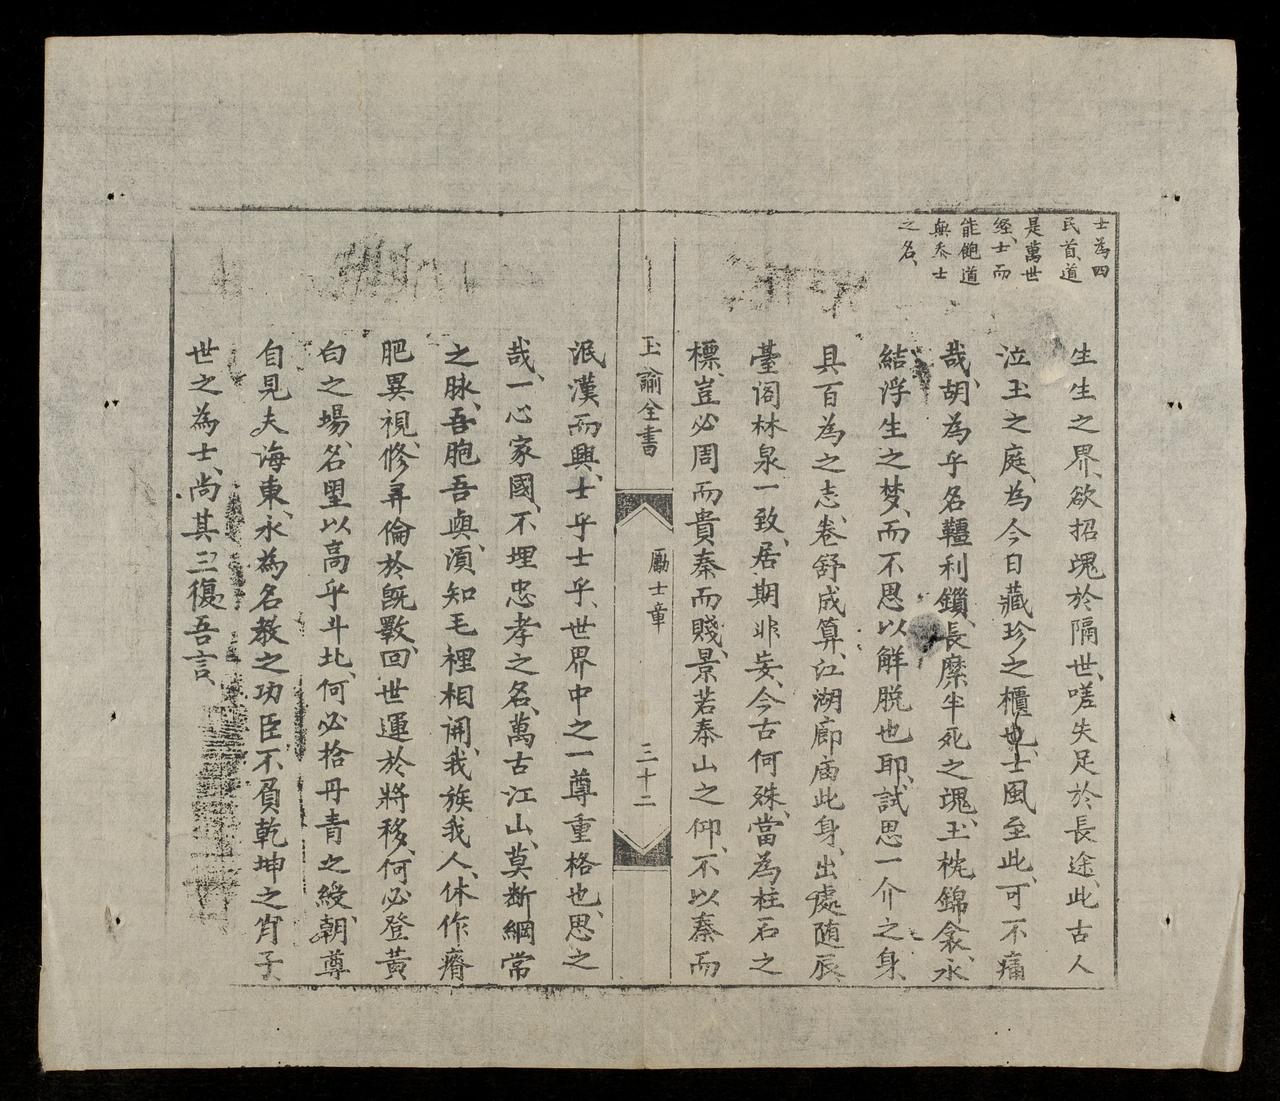 士為四
民首、道
是萬世
經、士而
能飽道
無忝士
之名、
生生之界、欲招魂於隔世、嗟失足於長途、此古人
泣玉之庭、為今日藏珍之櫃也、士風至此、可不痛
哉、胡為乎名韁利鎖、長縻半死之魂、玉枕錦衾、永
結浮生之梦、而不思以觧脱也耶、試思一介之身、
具百為之志、卷舒成算、江湖廊庙此身、出處随辰、
臺阁林泉一致、居期非妄、今古何殊、當為柱石之
標、豈必周而貴秦而賤、景若泰山之仰、不以秦而
玉諭全書
勵士章
三十二
泯漢而興、士乎士乎、世界中之一尊重格也、思之
哉、一心家國、不埋忠孝之名、萬古江山、莫断綱常
之脉、吾胞吾與、須知毛裡相関、我族我人、休作瘠
肥異視、修彛倫於既斁、回世運於將移、何必登黃
白之場、名望以高乎斗北、何必拾丹青之綬、朝尊
自見夫海東、永為名教之功臣、不負乾坤之肖子
世之為士、尚其三復吾言、